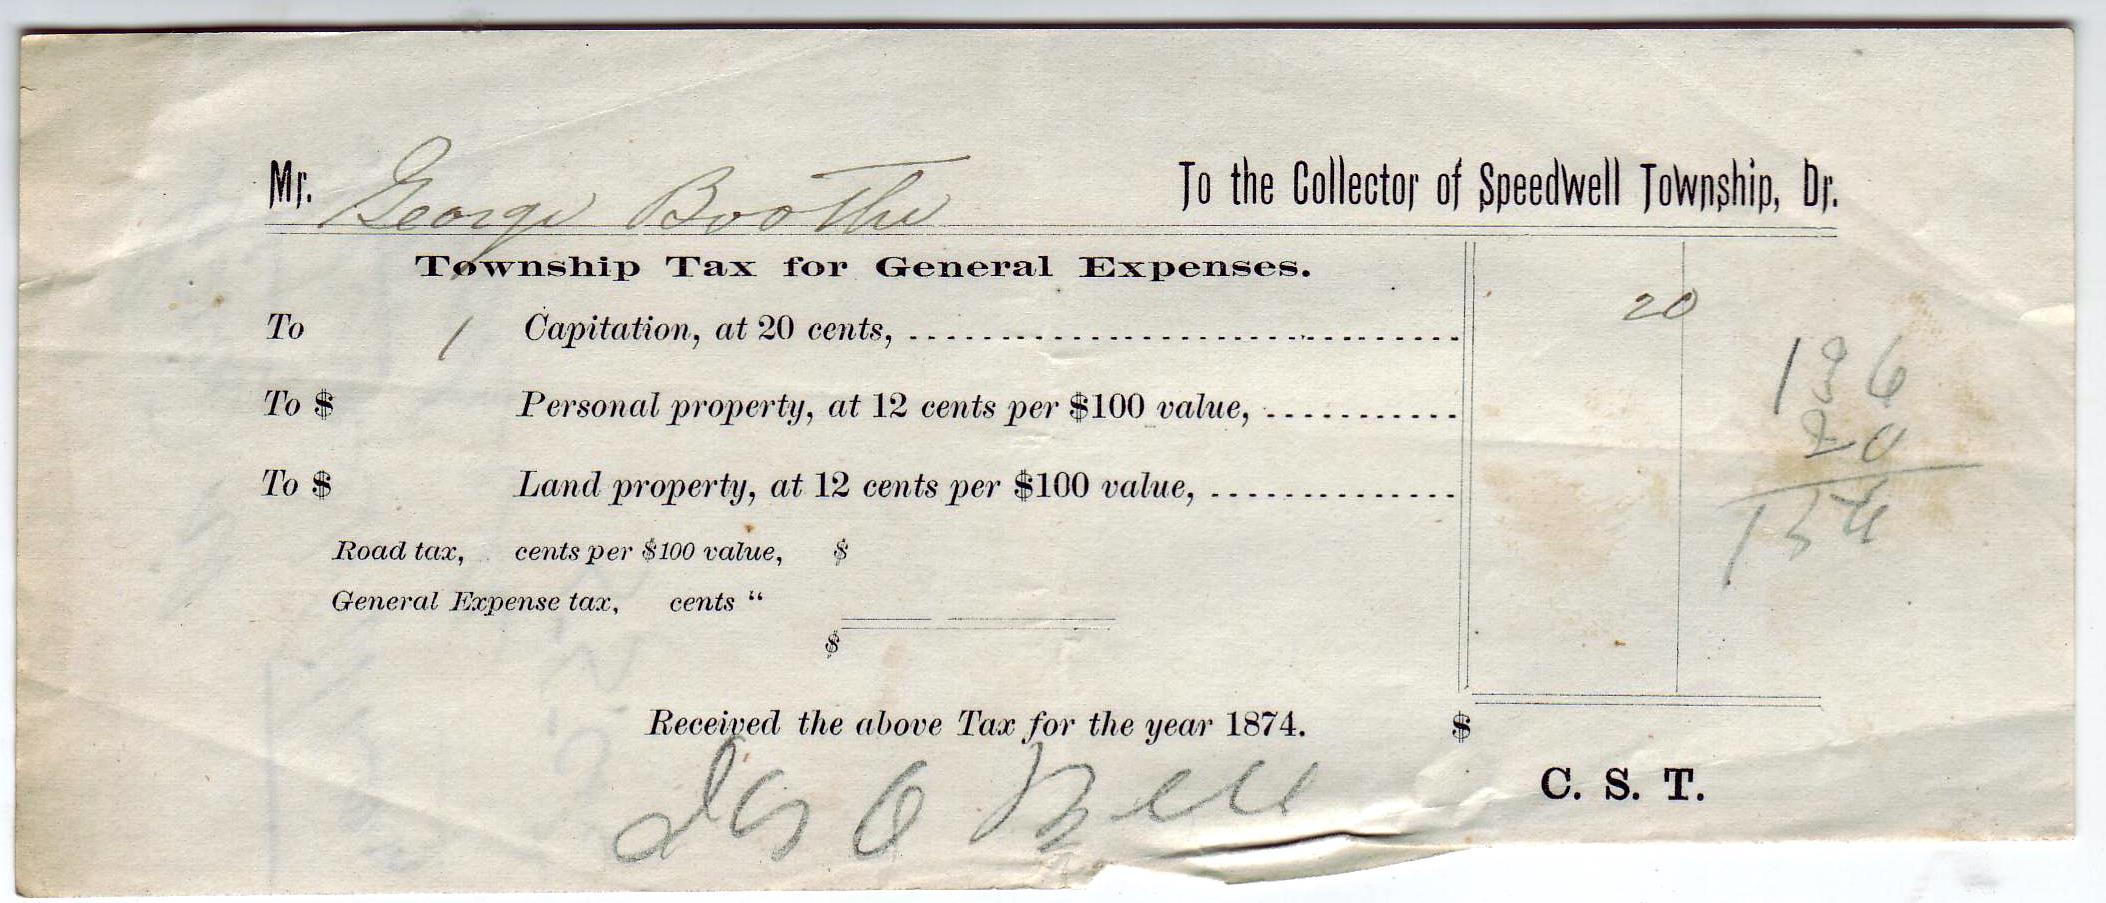 Mr. George Boothe To the Collector of Speedwell Township, Dr.
Township Tax for General Expenses.
To 1 Capitation, at 20 cents, 20
To $ Personal property, at 12 cents per $100 value,
To $ Land property, at 12 cents per $100 value,
Road tax, cents per $100 value, $
General Expense tax, cents "
$
Received the above Tax for the year 1874. $
C. S. T.
136
20
156
Bell